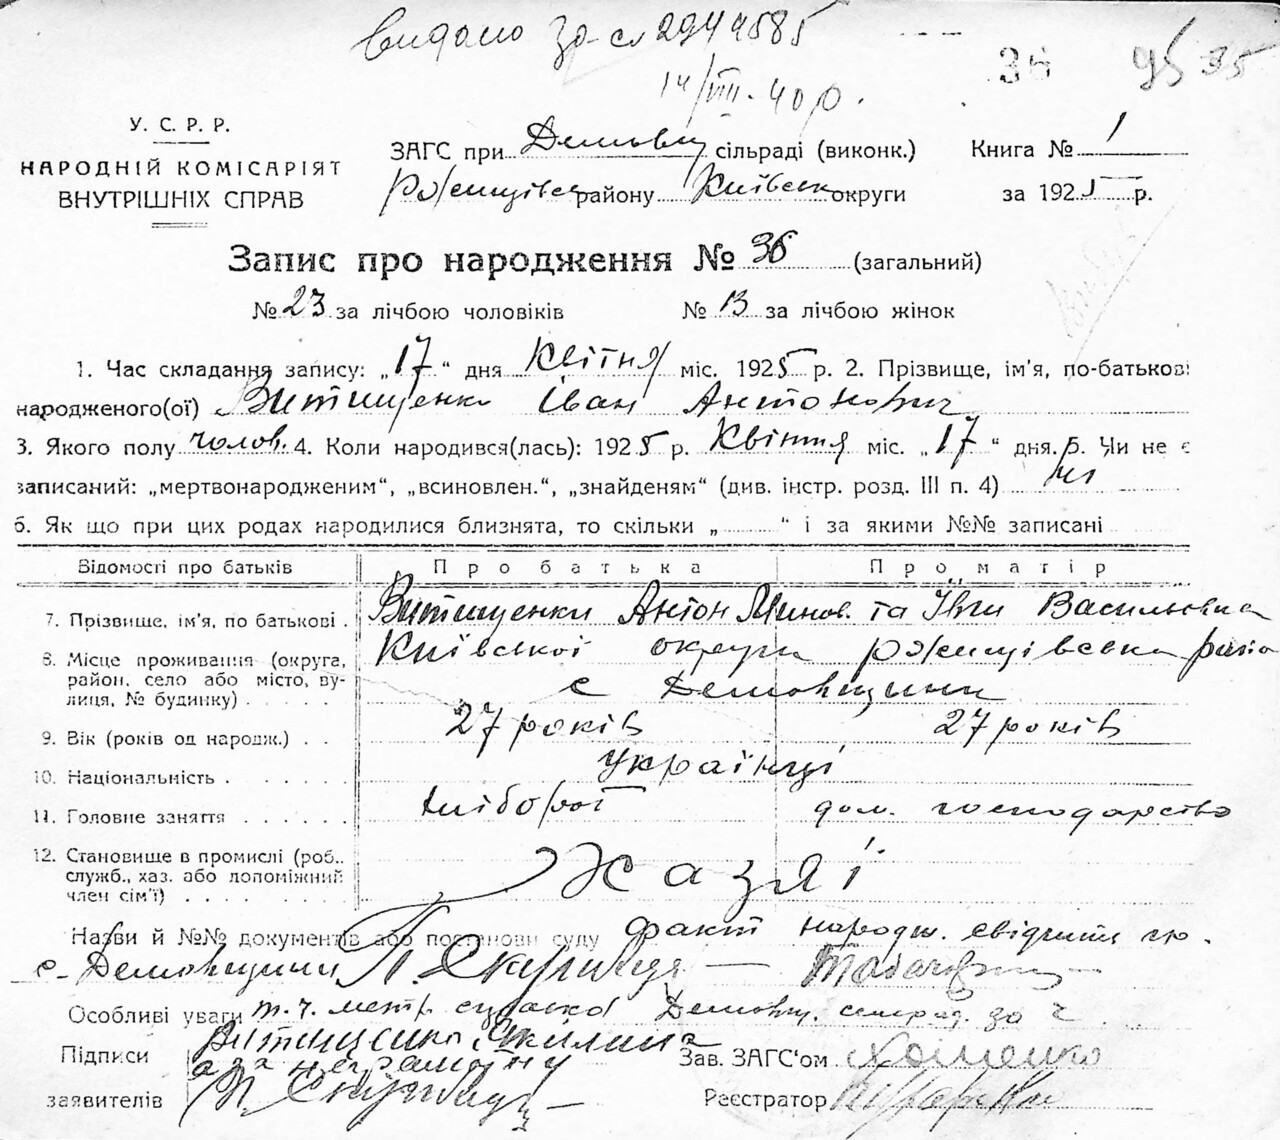 видано 294 9585
14/VIII-40 р.
36 95 35
У. С. Р. Р.
НАРОДНІЙ КОМІСАРІЯТ
ВНУТРІШНІХ СПРАВ
ЗАГС при сільраді (виконк.) Книга № 1
району Київськ округи за 1925 р.
Запис про народження № 36 (загальний)
№ 23 за лічбою чоловіків № 13 за лічбою жінок
1. Час складання запису: „17“ дня Квітня міс. 1925 р. 2. Прізвище, ім'я, по-батькові
народженого(ої) Витищенко Іван Антонович
3. Якого полу чолов. 4. Коли народився(лась): 1925 р. Квітня міс. „17“ дня. 5. Чи не є
записаний: „мертвонародженим“, „всиновлен.“, „знайденям“ (див. інстр. розд. III п. 4) ні
6. Як що при цих родах народилися близнята, то скільки „ “ і за якими №№ записані
Відомості про батьків Про батька Про матір
7. Прізвище, ім'я, по батькові . Витищенки Антон та Васильовна
8. Місце проживання (округа, район, село або місто, вулиця, № будинку) Київської округи
с Демовщини
9. Вік (років од народж.) . . 27 років 27 років
10. Національність . . . . . українці
11. Головне заняття . . . . . хлібороб дом. господарство
12. Становище в промислі (роб.. служб., хаз. або допоміжний член сім'ї) . . . . хазяї
Назви й №№ документів або постанови суду факт народж.
с. Демовщини
Особливі уваги
Підписи Витищенко
заявителів а за неграмотну
Зав. ЗАГС'ом
Реєстратор